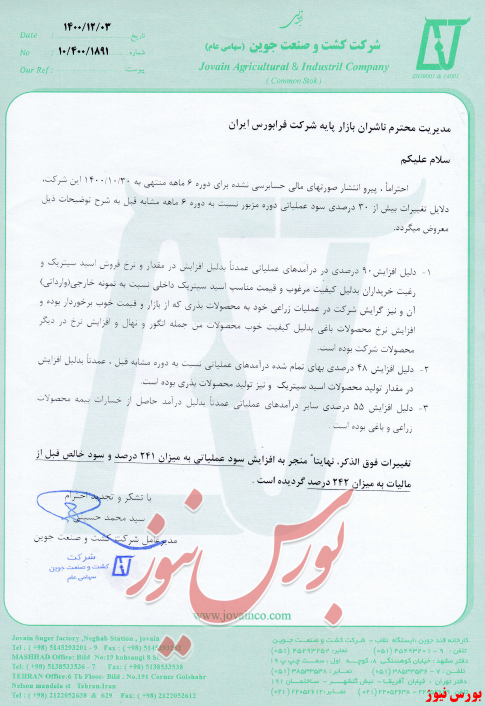 بسمه تعالی
Date : ۱۴۰۰/۱۲/۰۳ تاریخ
شرکت کشت و صنعت جوین (سهامی عام)
No : ۱۰/۴۰۰/۱۸۹۱ شماره
Jovain Agricultural & Industril Company
Our Ref : پیوست
( Common Stok )
ISO9001 & 14001
مدیریت محترم ناشران بازار پایه شرکت فرابورس ایران
سلام علیکم
احتراماً ، پیرو انتشار صورتهای مالی حسابرسی نشده برای دوره ۶ ماهه منتهی به ۱۴۰۰/۱۰/۳۰ این شرکت،
دلایل تغییرات بیش از ۳۰ درصدی سود عملیاتی دوره مزبور نسبت به دوره ۶ ماهه مشابه قبل به شرح توضیحات ذیل
معروض میگردد.
۱- دلیل افزایش ۹۰ درصدی در درآمدهای عملیاتی عمدتاً بدلیل افزایش در مقدار و نرخ فروش اسید سیتریک و
رغبت خریداران بدلیل کیفیت مرغوب و قیمت مناسب اسید سیتریک داخلی نسبت به نمونه خارجی(وارداتی)
آن و نیز گرایش شرکت در عملیات زراعی خود به محصولات بذری که از بازار و قیمت خوب برخوردار بوده و
افزایش نرخ محصولات باغی بدلیل کیفیت خوب محصولات من جمله انگور و نهال و افزایش نرخ در دیگر
محصولات شرکت بوده است.
۲- دلیل افزایش ۴۸ درصدی بهای تمام شده درآمدهای عملیاتی نسبت به دوره مشابه قبل ، عمدتاً بدلیل افزایش
در مقدار تولید محصولات اسید سیتریک و نیز تولید محصولات بذری بوده است.
۳- دلیل افزایش ۵۵ درصدی سایر درآمدهای عملیاتی عمدتاً بدلیل درآمد حاصل از خسارات بیمه محصولات
زراعی و باغی بوده است.
تغییرات فوق الذکر، نهایتاً منجر به افزایش سود عملیاتی به میزان ۲۴۱ درصد و سود خالص قبل از
مالیات به میزان ۲۴۲ درصد گردیده است .
با تشکر و تجدید احترام
سید محمد حسینی
مدیرعامل شرکت کشت و صنعت جوین
شرکت
کشت و صنعت جوین
سهامی عام
بورس نیوز
www.jovainco.com
Jovain Suger factory ,Neghab Station , jovain
Tel : ( +98) 5145293201 - 9 Fax : ( +98)
MASHHAD Office: Bild No:19 kohsangi 8
Tel: ( +98) 5138533526 - 7 Fax: ( +98) 5138533538
TEHRAN Office:6 Th Floor- Bild : No.191 Corner Golshahr
Nelson mandela st Tehran.Iran
Tel: ( +98) 2122052638 & 629 Fax: ( +98) 2122052612
کارخانه قند جوین: ایستگاه نقاب - شرکت کشت و صنعت جوین
بورس نیوز